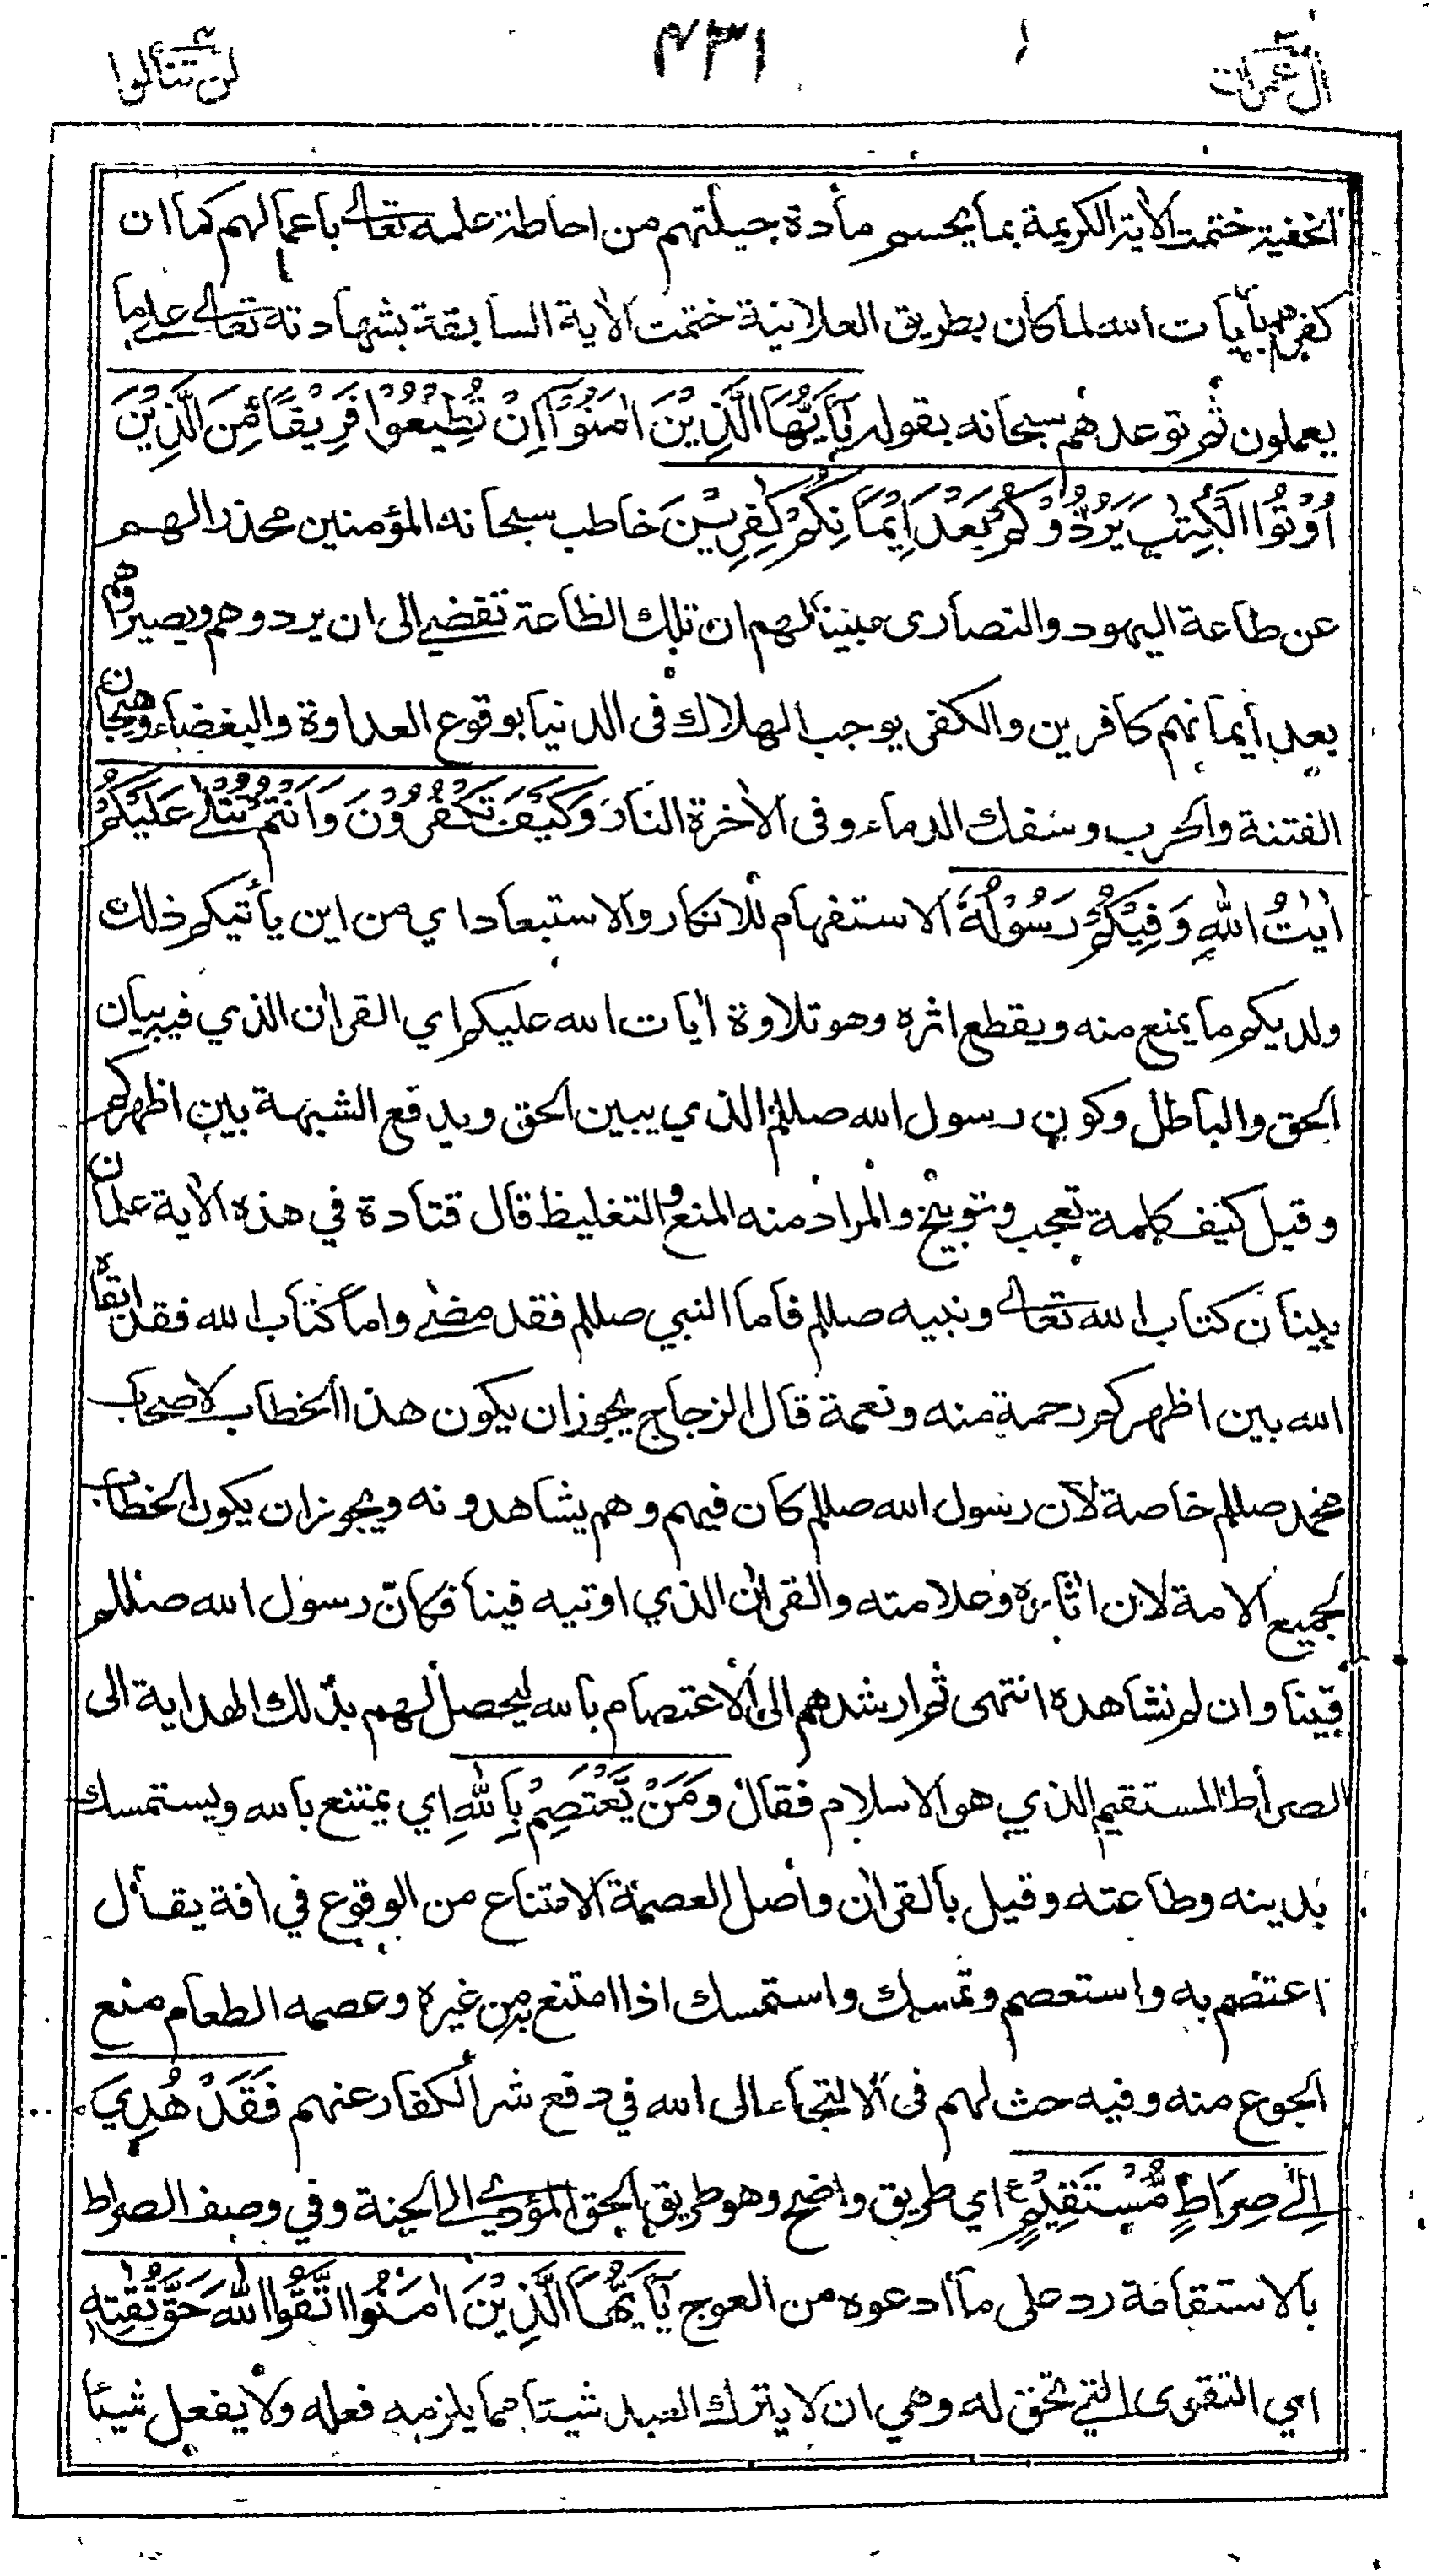 اٰل عمران
۴۳۱
لن تنالوا
الخفية ختمت الاٰية الكريمة بما يحسم مادة حيلتهم من احاطة علمه تعالى باعمالهم كما ان
كفرهم بأيات الله لما كان بطريق العلانية ختمت الاٰية السابقة بشهادته تعالى على ما
يعملون ثم توعدهم سبحانه بقوله يٰٓاَيُّهَا الَّذِيْنَ اٰمَنُوْٓا اِنْ تُطِيْعُوْا فَرِيْقًا مِّنَ الَّذِيْنَ
اُوْتُوا الْكِتٰبَ يَرُدُّوْكُمْ بَعْدَ اِيْمَانِكُمْ كٰفِرِيْنَ خاطب سبحانه المؤمنين محذرا لهم
عن طاعة اليهود والنصارى مبينا لهم ان تلك الطاعة تفضي الى ان يردوهم ويصيروهم
بعد أيمانهم كافرين والكفر يوجب الهلاك فى الدنيا بوقوع العداوة والبغضاء وهيجان
الفتنة والحرب وسفك الدماء وفى الاٰخرة النار وَكَيْفَ تَكْفُرُوْنَ وَاَنْتُمْ تُتْلٰى عَلَيْكُمْ
اٰيٰتُ اللّٰهِ وَفِيْكُمْ رَسُوْلُهٗ الاستفهام للانكار والاستبعاد اي من اين يأتيكم ذلك
ولديكم ما يمنع منه ويقطع اثره وهو تلاوة اٰيات الله عليكم اي القراٰن الذي فيه بيان
الحق والباطل وكون رسول الله صللم الذي يبين الحق ويدفع الشبهة بين اظهركم
وقيل كيف كلمة تعجب وتوبيخ والمراد منه المنع والتغليظ قال قتادة في هذه الاٰية علمان
بينان كتاب الله تعالى ونبيه صللم فاما النبي صللم فقد مضى واما كتاب الله فقد ابقاه
الله بين اظهركم رحمة منه ونعمة قال الزجاج يجوز ان يكون هذا الخطاب لاصحاب
محمد صللم خاصة لان رسول الله صللم كان فيهم وهم يشاهدونه ويجوز ان يكون الخطاب
لجميع الامة لان اٰثاره وعلامته والقراٰن الذي اوتيه فينا فكانّ رسول الله صللم
فينا وان لم نشاهده انتهى ثم ارشدهم الى الاعتصام بالله ليحصل لهم بذلك الهداية الى
الصراط المستقيم الذي هو الاسلام فقال وَمَنْ يَّعْتَصِمْ بِاللّٰهِ اي يمتنع بالله ويستمسك
بدينه وطاعته وقيل بالقراٰن واصل العصمة الامتناع من الوقوع في اٰفة يقال
اعتصم به واستعصم وتمسك واستمسك اذا امتنع به من غيره وعصمه الطعام منع
الجوع منه وفيه حث لهم فى الالتجاء الى الله في دفع شر الكفار عنهم فَقَدْ هُدِيَ
اِلٰى صِرَاطٍ مُّسْتَقِيْمٍ ع اي طريق واضح وهو طريق الحق المؤدي الى الجنة وفي وصف الصراط
بالاستقامة رد على ما ادعوه من العوج يٰٓاَيُّهَا الَّذِيْنَ اٰمَنُوا اتَّقُوا اللّٰهَ حَقَّ تُقٰتِهٖ
اي التقوى التي تحق له وهي ان لا يترك العبد شيئا مما يلزمه فعله ولا يفعل شيئا